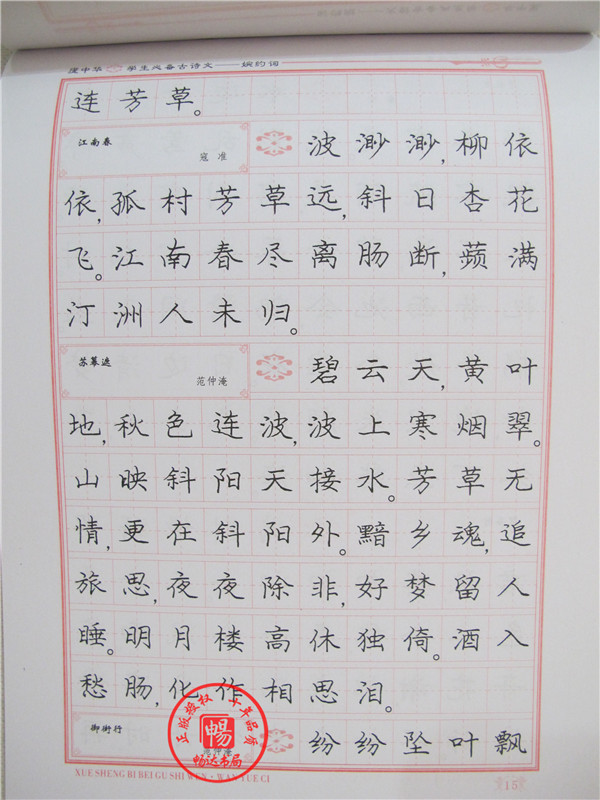 庞中华 学生必备古诗文——婉约词
连芳草。
江南春
寇准
波渺渺,柳依
依,孤村芳草远,斜日杏花
飞。江南春尽离肠断,蘋满
汀洲人未归。
苏幕遮
范仲淹
碧云天,黄叶
地,秋色连波,波上寒烟翠。
山映斜阳天接水。芳草无
情,更在斜阳外。黯乡魂,追
旅思,夜夜除非,好梦留人
睡。明月楼高休独倚。酒入
愁肠,化作相思泪。
御街行
范仲淹
纷纷坠叶飘
正版授权 十年品质
畅
畅达书局
XUE SHENG BI BEI GU SHI WEN · WAN YUE CI
15